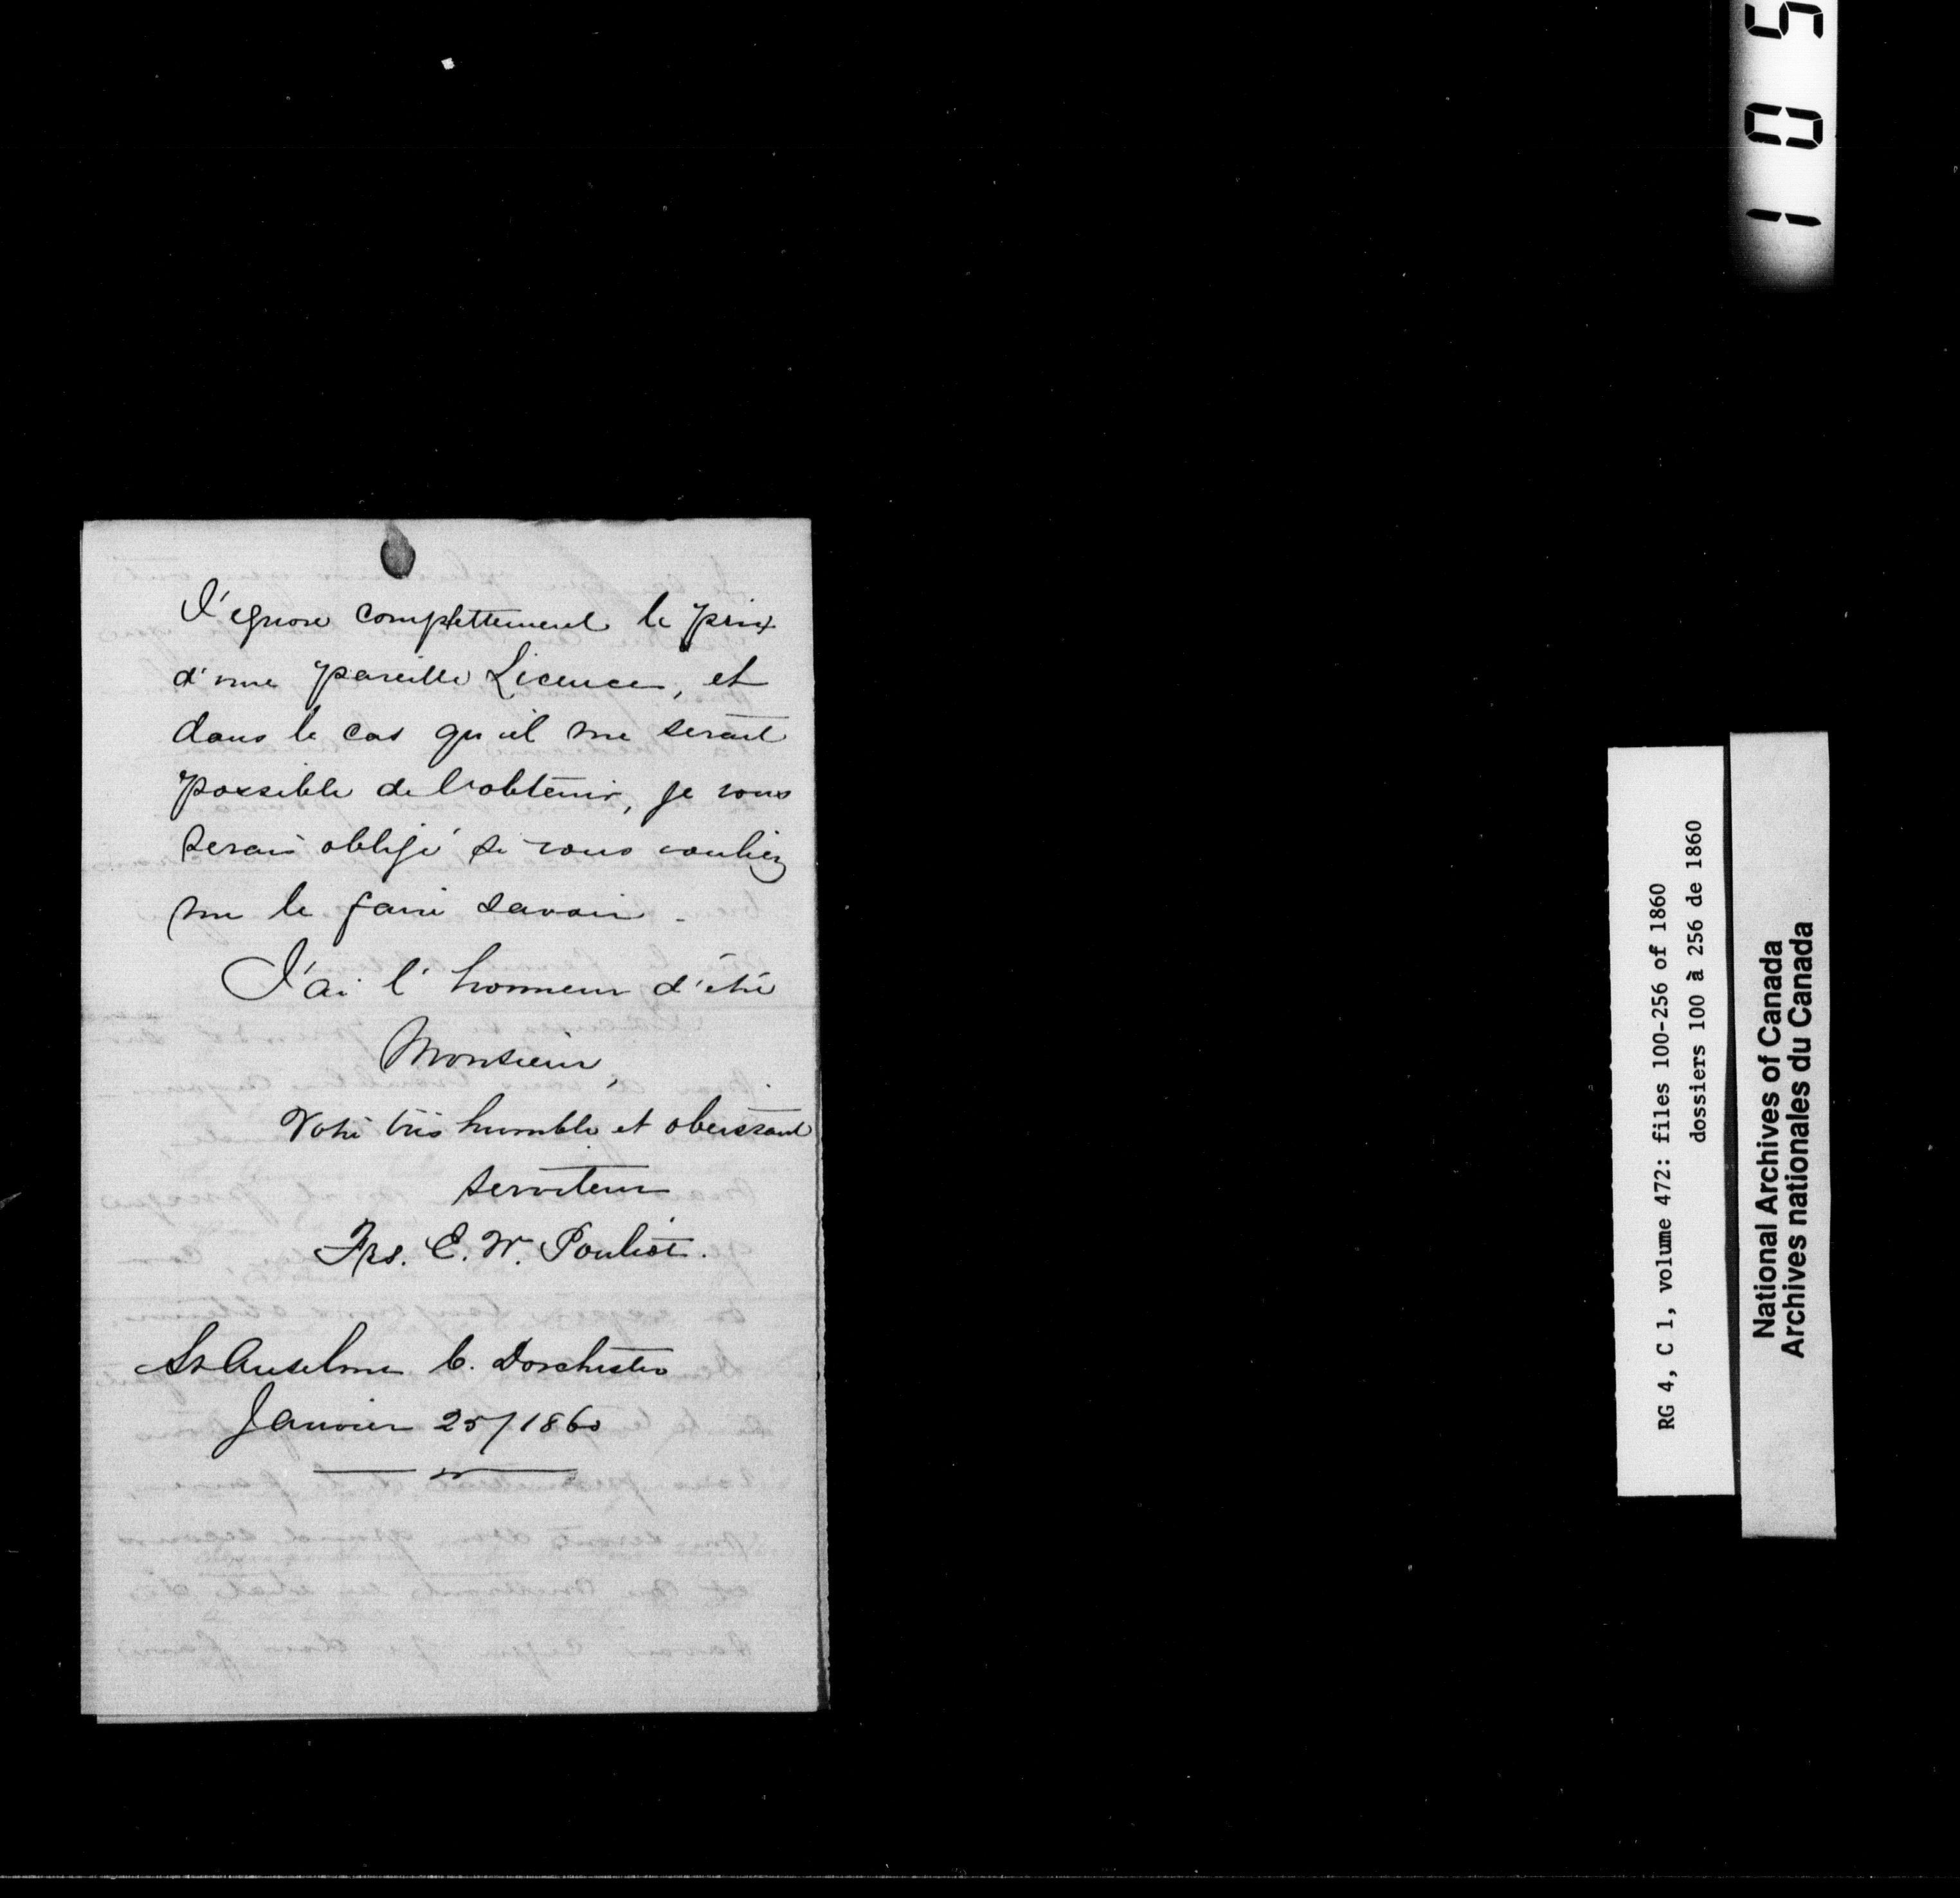 J'ignore complettement le prix
d'une pareille Licence, et
dans le cas qu'il me serait
possible de l'obtenir, je vous
serais obligé si vous vouliez
me le faire savoir.
J'ai l'honneur d'être
Monsieur,
Votre très humble et obeissant
serviteur
Frs. E. W. Pouliot.
St Anselme C. Dorchester
Janvier 25/1860
105
RG 4, C 1, volume 472: files 100-256 of 1860
dossiers 100 à 256 de 1860
National Archives of Canada
Archives nationales du Canada